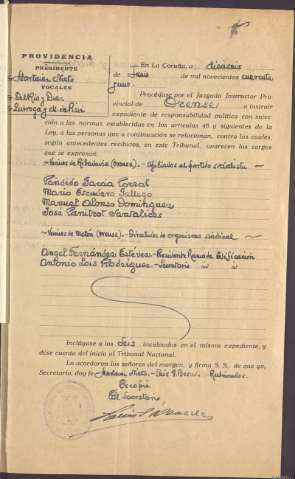 PROVIDENCIA
PRESIDENTE
VOCALES
En La Coruña, a dieciseis
de Junio de mil novecientos cuarenta
Procédase por el Juzgado Instructor Pro-
vincial de Orense a instruir
expediente de responsabilidad política con suje-
ción a las normas establecidas en los artículos 46 y siguientes de la
Ley, a las personas que a continuación se relacionan, contra las cuales,
según antecedentes recibidos, en este Tribunal, aparecen los cargos
que se expresan
Vecinos de Ribadavia (Orense) - Afiliados al partido socialista
Cándido García
Mario Escudero Gallego
Manuel Alonso Domínguez
José
Vecinos de (Orense) - Directivos de organismo sindical
Angel Fernández Estévez - Presidente Ramo de Edificación
Antonio Lois Rodríguez - Secretario " "
Inclúyase a los seis inculpados en el mismo expediente, y
dése cuenta del inicio al Tribunal Nacional.
Lo acordaron los señores del margen, y firma S. S. de que yo,
Secretario, doy fe
Es copia
El Secretario